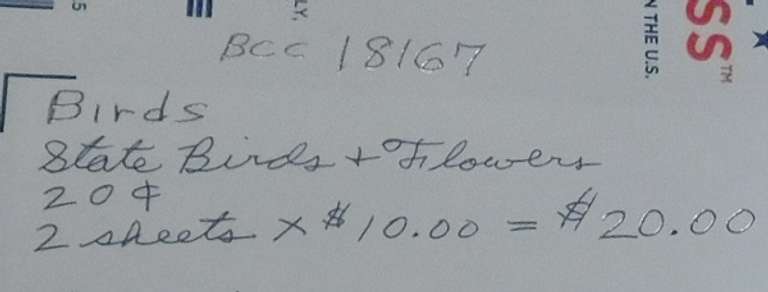 5
LY.
N THE U.S.
SS™
BCC 18167
Birds
State Birds + Flowers
20¢
2 sheets x $10.00 = $20.00